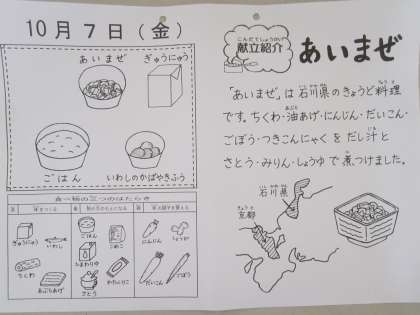 10月7日(金)
あいまぜ
ぎゅうにゅう
ごはん
いわしのかばやきふう
食べ物の三つのはたらき
ぎゅうにゅう
いわし
ちくわ
あぶらあげ
ごはん
こめこ
ひまわりゆ
さとう
かたくりこ
にんじん
しょうが
だいこん
ごぼう
こんだてしょうかい
献立紹介
あいまぜ
「あいまぜ」は 石川県のきょうど料理
です。ちくわ・油あげ・にんじん・だいこん・
ごぼう・つきこんにゃく を だし汁と
さとう・みりん・しょうゆ で 煮つけました。
石川県
京都